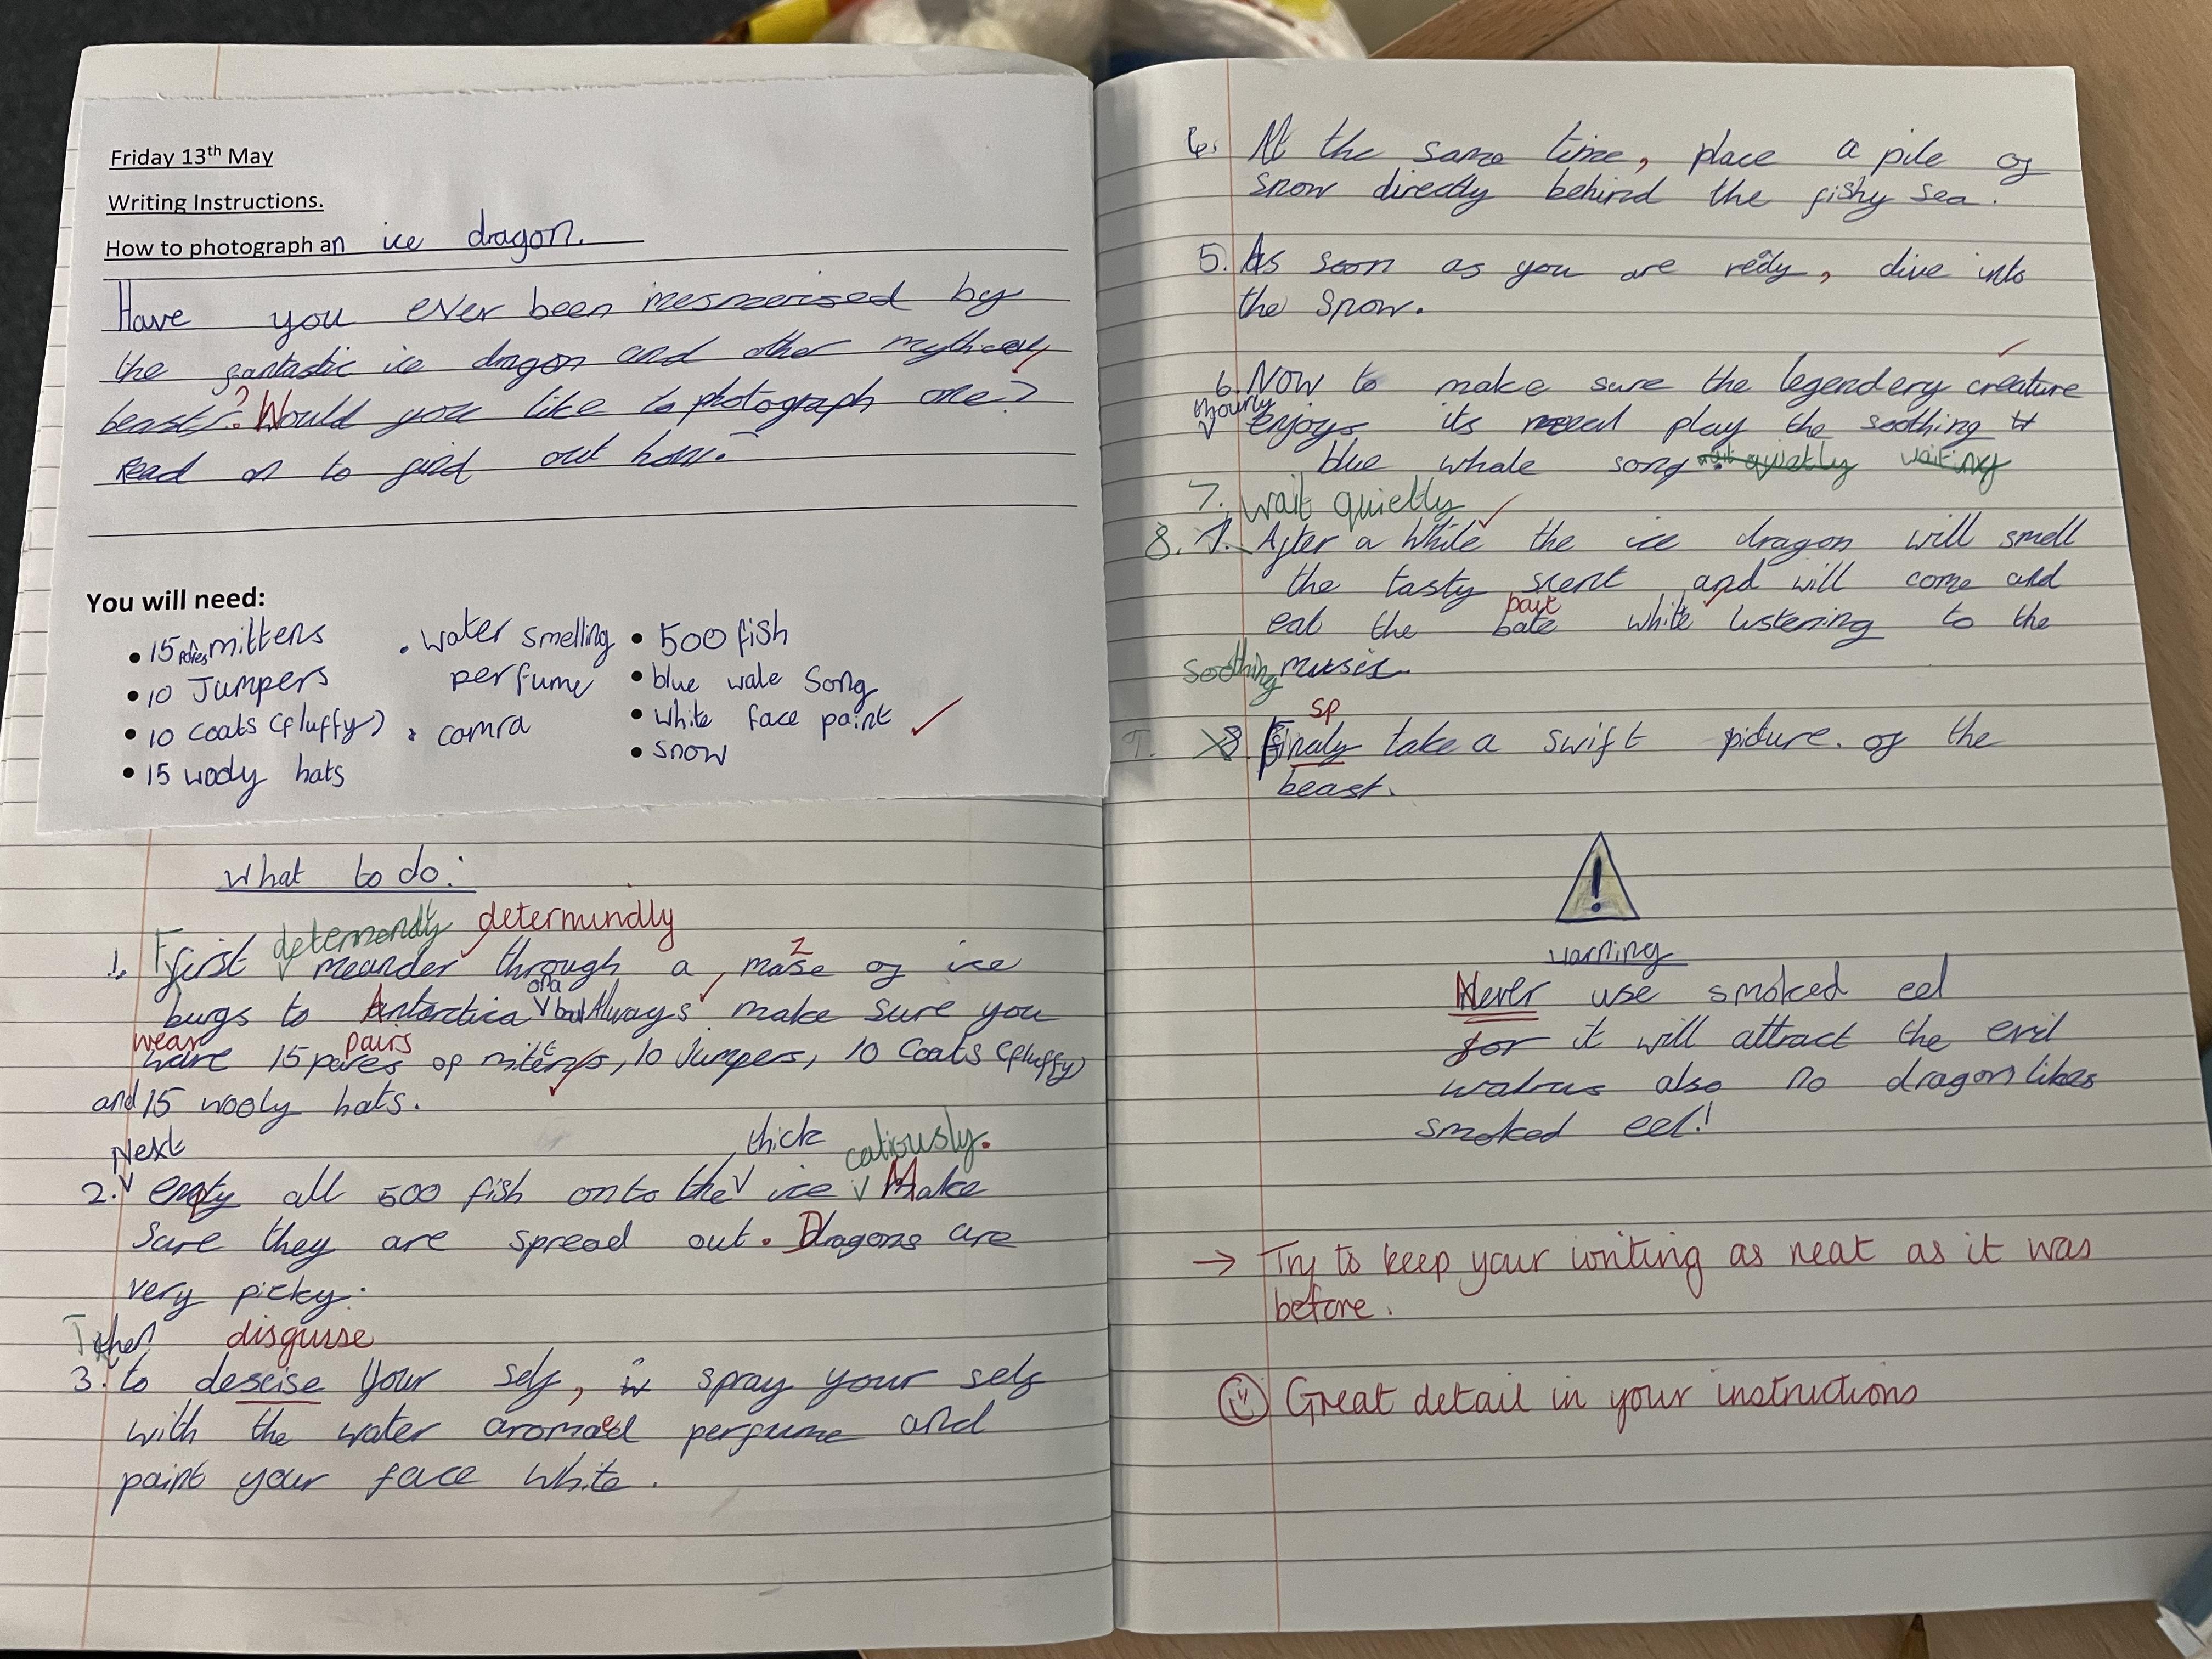 Friday 13th May
Writing Instructions.
How to photograph an ice dragon.
Have you ever been mesmerised by
the fantastic ice dragon and other mythical
beasts? Would you like to photograph one?
Read on to find out how.
You will need:
• 15 paires mittens
• 10 Jumpers
• 10 Coats (fluffy)
• 15 wooly hats
• water smelling
perfume
• comra
• 500 fish
• blue wale Song
• white face paint
• snow
What to do:
determendly determindly
1. First meander through a mase of ice
z
on a
burgs to Antarctica but Always make sure you
wear pairs
ware 15 pares of mittens, 10 Jumpers, 10 Coats (fluffy)
and 15 wooly hats.
Next thick catiously.
2. empty all 500 fish onto the ice Make
sure they are spread out. Dragons are
very picky.
Then disguise
3. to descise your self, spray your self
with the water aromaed perfume and
paint your face white.
4. At the same time, place a pile of
snow directly behind the fishy sea.
5. As soon as you are redy, dive into
the snow.
6. Now to make sure the legendery creature
enjoys its meal play the soothing
blue whale song wait quietly waiting
7. wait quietly
8. 7. After a while the ice dragon will smell
the tasty scent and will come and
bait
eat the bate while listening to the
soothing music.
sp
9. 8. Finaly take a swift picture. of the
beast.
!
warning
Never use smoked eel
for it will attract the evil
walrus also no dragon likes
smoked eel!
→ Try to keep your writing as neat as it was
before.
Great detail in your instructions